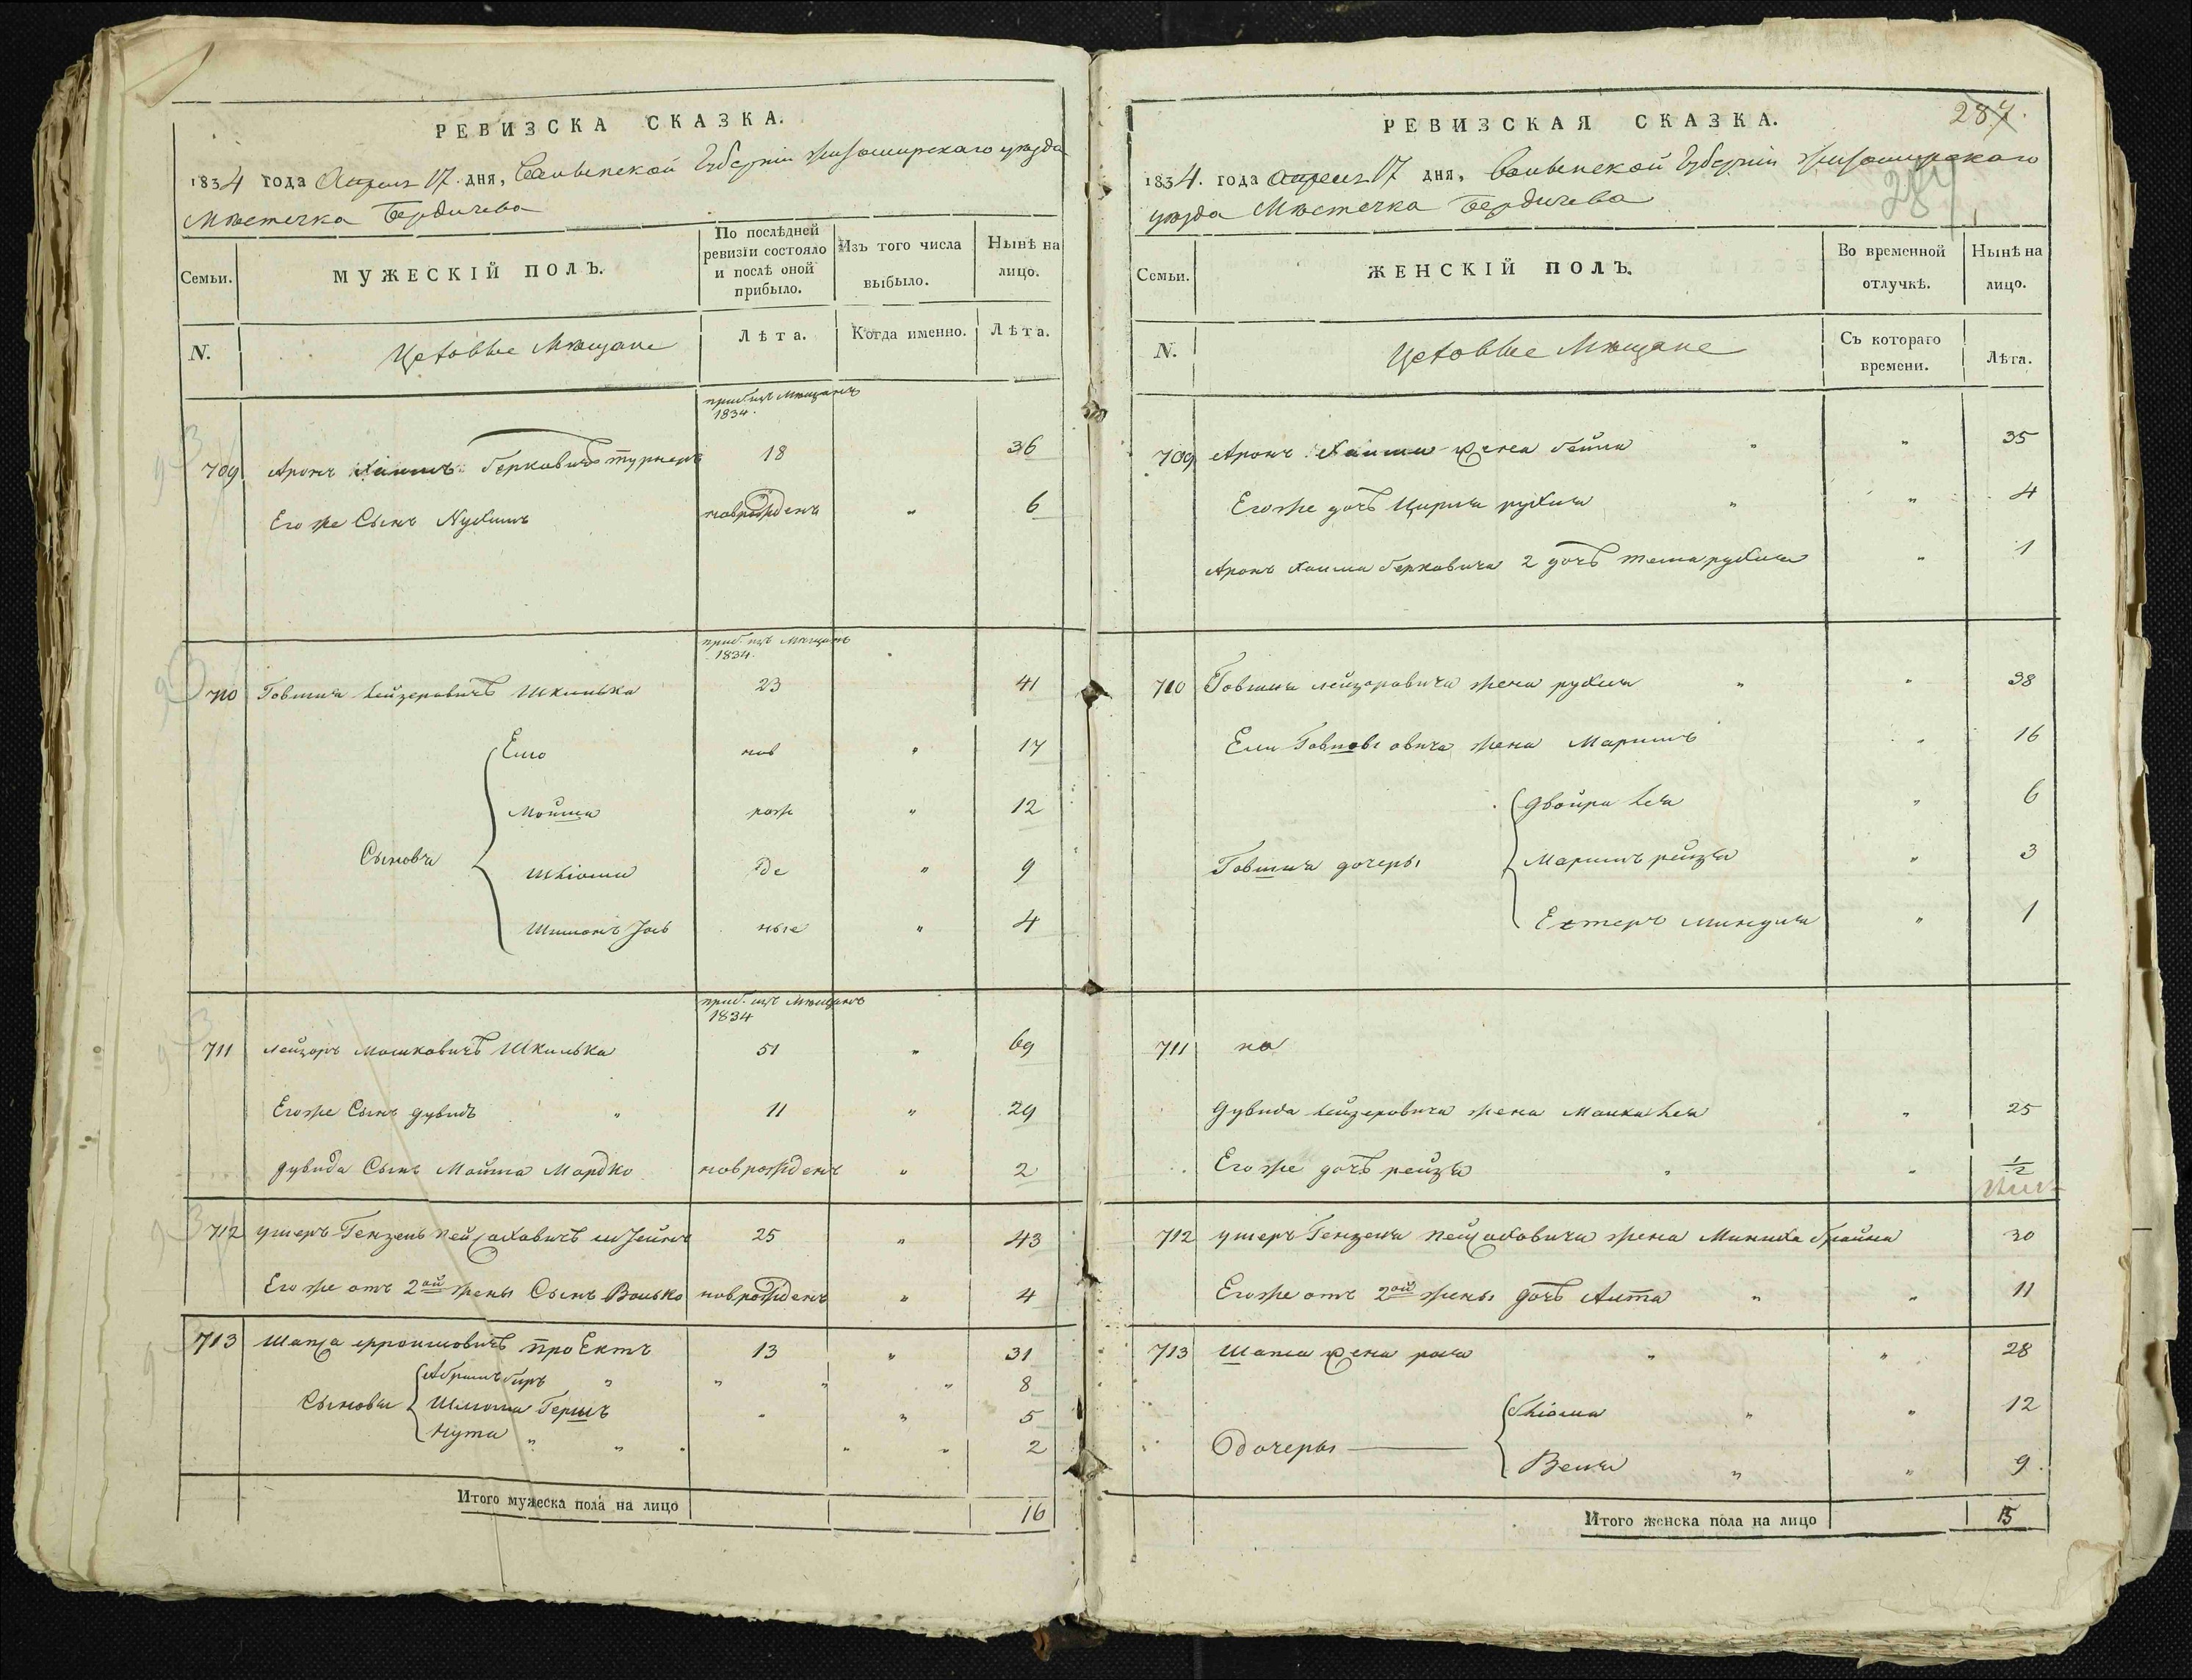 РЕВИЗСКА СКАЗКА.
1834 года Апреля 17 дня, Волынской Губерніи Житомирскаго уезда
Мѣстечка Бердичева
Семьи.
МУЖЕСКІЙ ПОЛЪ.
По послѣдней ревизіи состояло и послѣ оной прибыло.
Изъ того числа выбыло.
Нынѣ на лицо.
N.
Цеховые Мѣщане
Лѣта.
Когда именно.
Лѣта.
приб. изъ Мѣщанъ
1834.
709 Аронъ Хаимъ Берковичъ турнеръ 18 36
Его же Сынъ Нухимъ новрожденъ " 6
приб. изъ Мѣщанъ
1834.
710 Говшия Лейзеровичъ Шкилька 23 41
Сыновья
Елю нов " 17
Мойша рож " 12
Шліома де " 9
Шимонъ Іось ные " 4
приб. изъ Мѣщанъ
1834
711 Лейзоръ Мошковичъ Шкилька 51 " 69
Его же Сынъ Дувидъ " 11 " 29
Дувида Сынъ Мойша Мордко новрожденъ " 2
712 Ушеръ Гензель Пейсаховичъ 25 " 43
Его же отъ 2ой жены Сынъ Волько новрожденъ " 4
713 Шапса Фроимовичъ Проектъ 13 " 31
Сыновья
Абрамъ Беръ " " " " 8
Шліома Гершъ " " 5
Нута " " " " 2
Итого мужеска пола на лицо 16
РЕВИЗСКАЯ СКАЗКА.
287.
287
1834. года Апреля 17 дня, Волынской Губерніи Житомирскаго
уезда Мѣстечка Бердичева
Семьи.
ЖЕНСКІЙ ПОЛЪ.
Во временной отлучкѣ.
Нынѣ на лицо.
N.
Цеховые Мѣщане
Съ котораго времени.
Лѣта.
709 Аронъ Хаима жена Бейла " " 35
Его же дочь Цирля Рухля " " 4
Аронъ Хаима Берковича 2 дочь Тема Рухля " 1
710 Говшия Лейзеровича жена Рухля " " 38
Ели Говшовичa жена Маримъ " 16
Говшия дочеры
Двойра Лея " 6
Маримъ Рейзя " 3
Ехтеръ Миндля " 1
711 но
Дувида Лейзеровича жена Малка Лея " 25
Его же дочь Рейзя " " 1/2
712 Ушеръ Гензеля Пейсаховича жена Миниха Брайна 30
Его же отъ 2ой жены дочь Алта " " 11
713 Шапса жена Рася " " 28
Дочеры
Шліома " " 12
Веля " " 9.
Итого женска пола на лицо 15